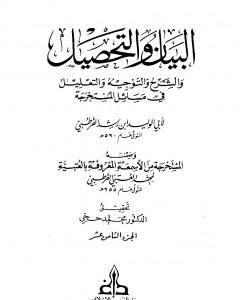 البيان والتحصيل
والشرح والتوجيه والتعليل
في مسائل المستخرجة
لأبي الوليد ابن رشد القرطبي
المتوفى عام ٥٢٠ هـ
وضمنه
المستخرجة من الأسمعة المعروفة بالعتبية
لمحمد العتبي القرطبي
المتوفى عام ٢٥٥ هـ
تحقيق
الدكتور محمد حجي
الجزء الثامن عشر